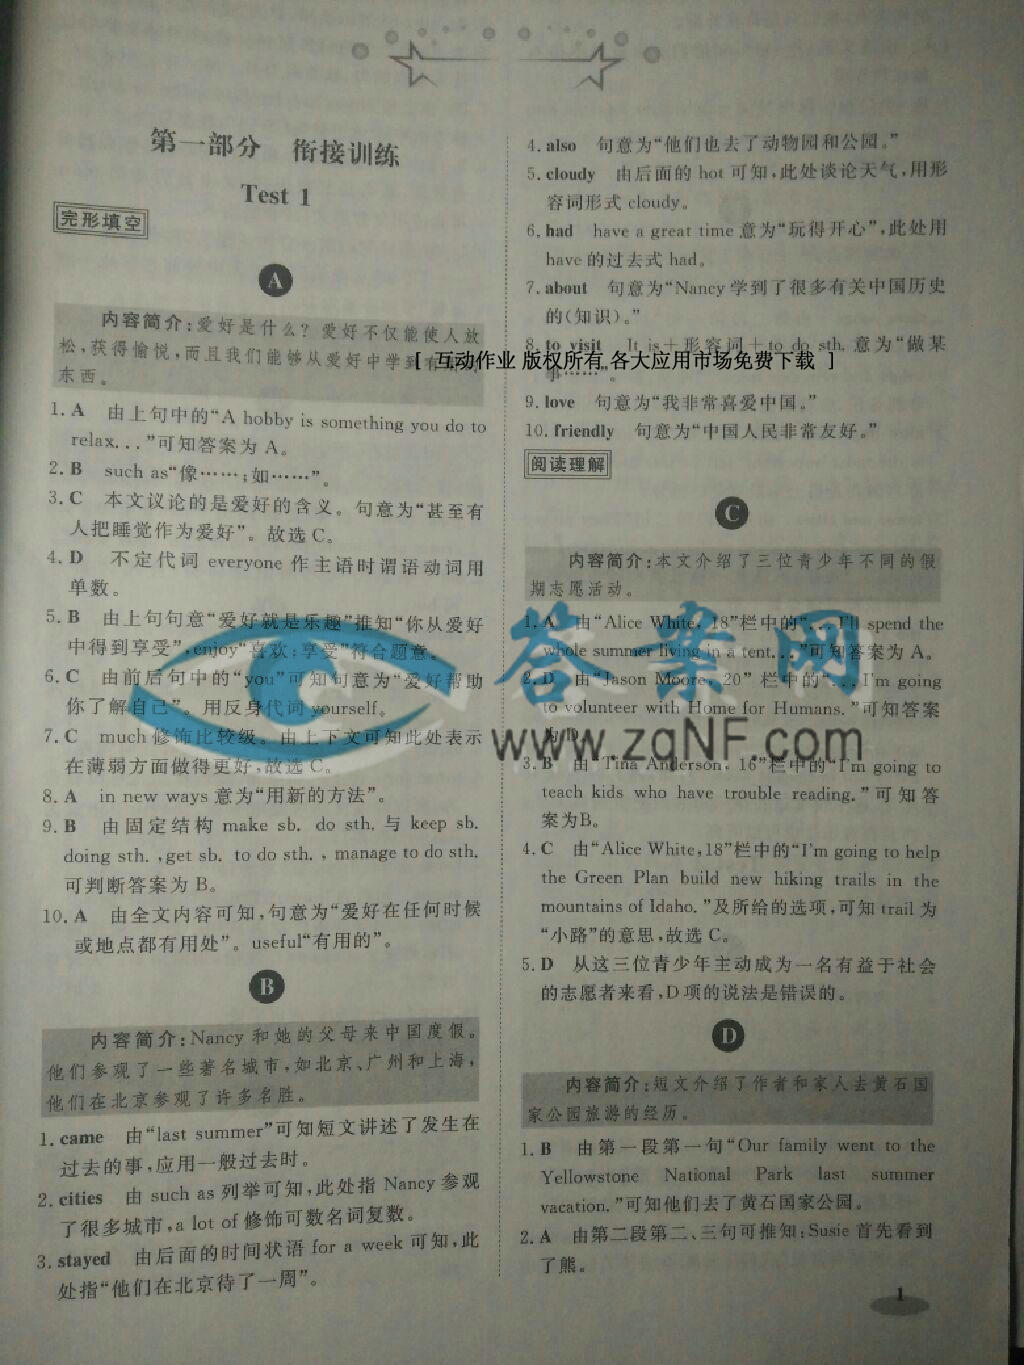 第一部分 衔接训练
Test 1
完形填空
A
内容简介:爱好是什么?爱好不仅能使人放
松,获得愉悦,而且我们能够从爱好中学到
东西。
1. A 由上句中的“A hobby is something you do to
relax...”可知答案为 A。
2. B such as“像……;如……”。
3. C 本文议论的是爱好的含义。句意为“甚至有
人把睡觉作为爱好”。故选 C。
4. D 不定代词 everyone 作主语时谓语动词用
单数。
5. B 由上句句意“爱好就是乐趣”推知“你从爱好
中得到享受”,enjoy“喜欢;享受”符合题意。
6. C 由前后句中的“you”可知句意为“爱好帮助
你了解自己”。用反身代词 yourself。
7. C much 修饰比较级。由上下文可知此处表示
在薄弱方面做得更好,故选 C。
8. A in new ways 意为“用新的方法”。
9. B 由固定结构 make sb. do sth. 与 keep sb.
doing sth. ,get sb. to do sth. , manage to do sth.
可判断答案为 B。
10. A 由全文内容可知,句意为“爱好在任何时候
或地点都有用处”。useful“有用的”。
B
内容简介:Nancy 和她的父母来中国度假。
他们参观了一些著名城市,如北京、广州和上海,
他们在北京参观了许多名胜。
1. came 由“last summer”可知短文讲述了发生在
过去的事,应用一般过去时。
2. cities 由 such as 列举可知,此处指 Nancy 参观
了很多城市,a lot of 修饰可数名词复数。
3. stayed 由后面的时间状语 for a week 可知,此
处指“他们在北京待了一周”。
4. also 句意为“他们也去了动物园和公园。”
5. cloudy 由后面的 hot 可知,此处谈论天气,用形
容词形式 cloudy。
6. had have a great time 意为“玩得开心”,此处用
have 的过去式 had。
7. about 句意为“Nancy 学到了很多有关中国历史
的(知识)。”
8. to visit It is+形容词+to do sth. 意为“做某
事……”
[ 互动作业 版权所有 各大应用市场免费下载 ]
9. love 句意为“我非常喜爱中国。”
10. friendly 句意为“中国人民非常友好。”
阅读理解
C
内容简介:本文介绍了三位青少年不同的假
期志愿活动。
1. A 由“Alice White, 18”栏中的“...I'll spend the
whole summer living in a tent...”可知答案为 A。
2. D 由“Jason Moore, 20”栏中的“...I'm going
to volunteer with Home for Humans.”可知答案
为 D。
3. B 由“Tina Anderson, 16”栏中的“I'm going to
teach kids who have trouble reading.”可知答
案为B。
4. C 由“Alice White,18”栏中的“I'm going to help
the Green Plan build new hiking trails in the
mountains of Idaho.”及所给的选项,可知 trail 为
“小路”的意思,故选 C。
5. D 从这三位青少年主动成为一名有益于社会
的志愿者来看,D 项的说法是错误的。
D
内容简介:短文介绍了作者和家人去黄石国
家公园旅游的经历。
1. B 由第一段第一句“Our family went to the
Yellowstone National Park last summer
vacation.”可知他们去了黄石国家公园。
2. A 由第二段第二、三句可推知:Susie 首先看到
了熊。
答案网
www.zqNF.com
1